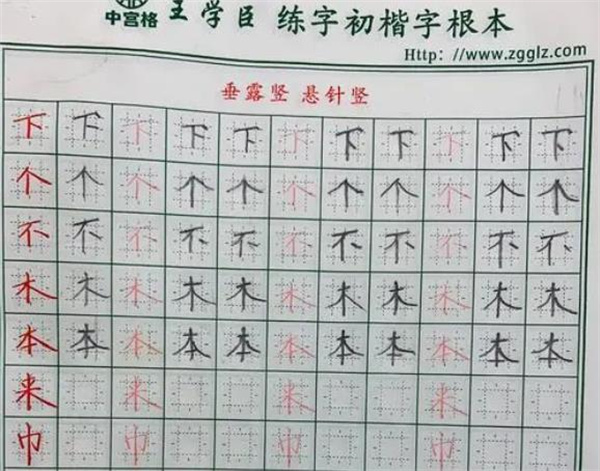 中宫格 王学臣 练字初楷字根本
Http: //www.zgglz.com
垂露竖 悬针竖
下 下 下 下 下 下 下 下 下 下 下
个 个 个 个 个 个 个 个 个 个 个
不 不 不 不 不 不 不 不 不 不 不
木 木 木 木 木 木 木 木 木 木 木
本 本 本 本 本 本 本 本 本 本 本
来 来 来 来
巾 巾 巾 巾